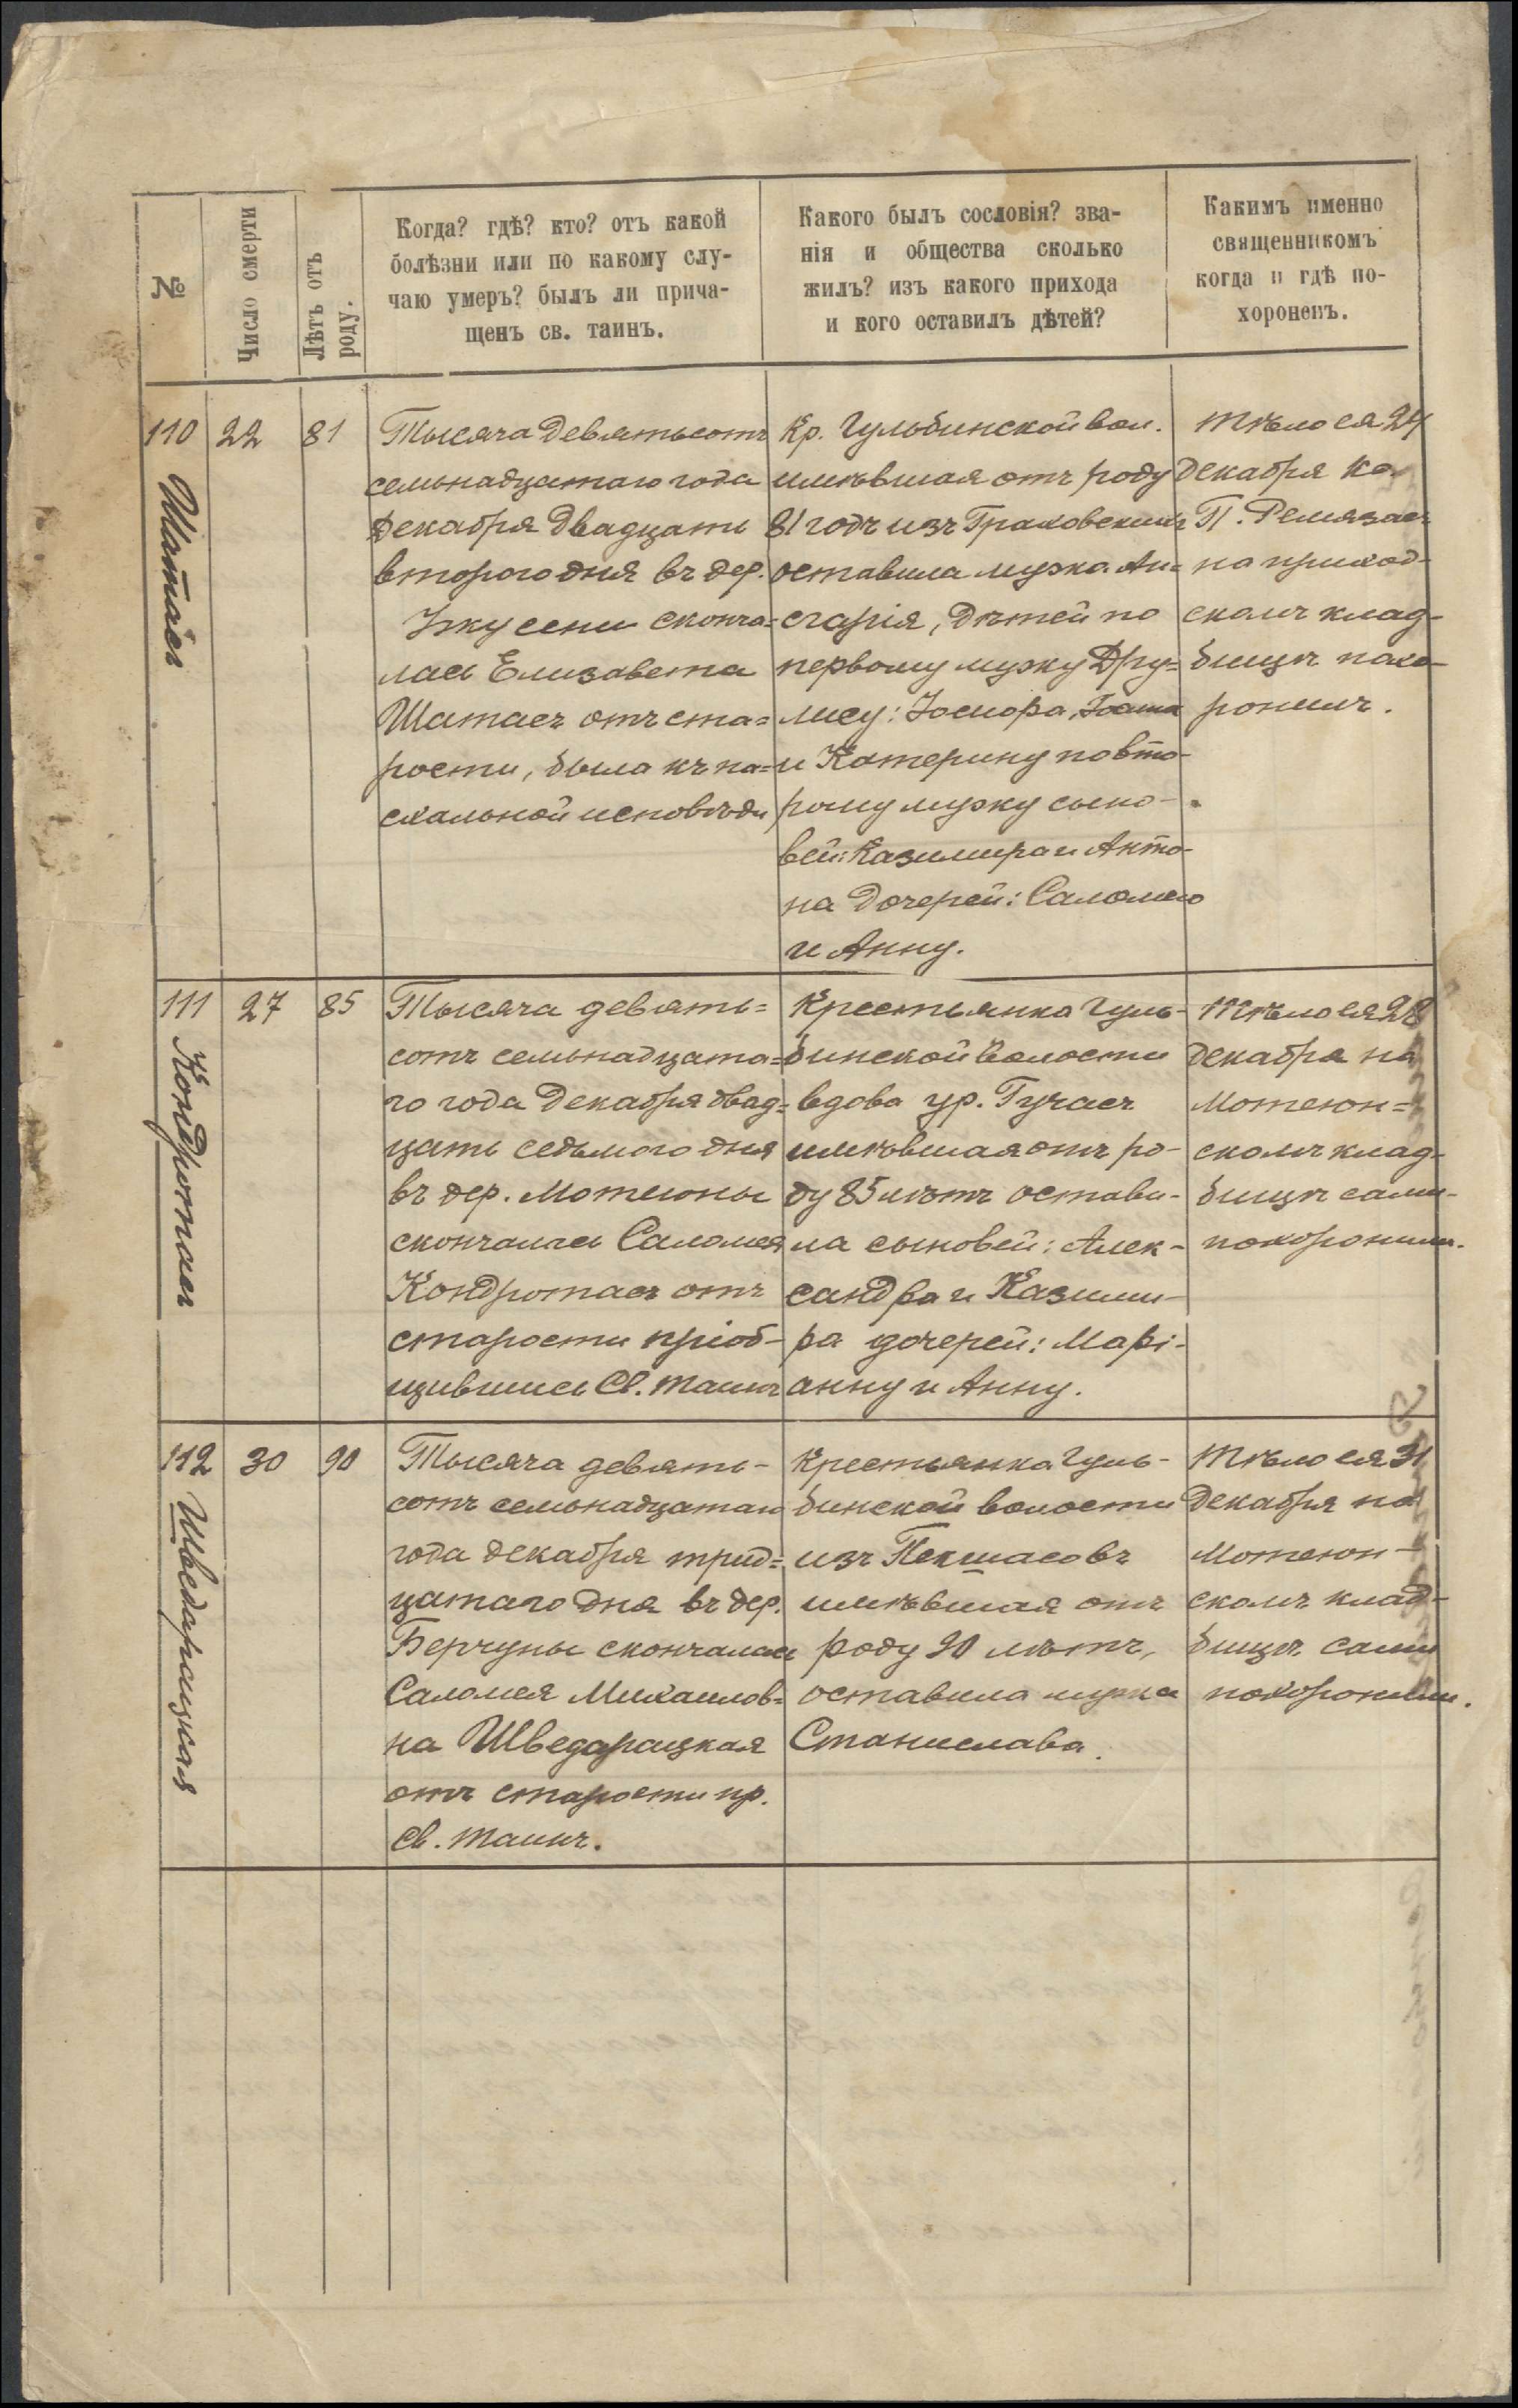 №
Число смерти
Лѣтъ отъ
роду.
Когда? гдѣ? кто? отъ какой
болѣзни или по какому слу-
чаю умеръ? былъ ли прича-
щенъ св. таинъ.
Какого былъ сословія? зва-
нія и общества сколько
жилъ? изъ какого прихода
и кого оставилъ дѣтей?
Какимъ именно
священникомъ
когда и гдѣ по-
хороненъ.
110
Шатасъ
22
81
Тысяча девятьсотъ
семьнадцатаго года
Декабря двадцать
второго дня въ дер.
сконча=
лась Елизавета
Шатасъ отъ ста=
рости, была къ па=
схальной исповѣди
Кр. Гульбинской вол.
имѣвшая отъ роду
81 годъ изъ Граховскихъ
оставила мужа Ан=
сгарія, дѣтей по
первому мужу Дру=
лису: Іосифа,
и Катерину по вто-
рому мужу сыно-
вей: Казимира и Анто-
на дочерей: Саломею
и Анну.
Тѣло ея 24
Декабря Кс.
П. Ремязасъ
на приход-
скомъ клад-
бищѣ похо-
ронилъ.
111
Кондротасъ
27
85
Тысяча девять=
сотъ семьнадцата=
го года Декабря двад=
цать седьмого дня
въ дер. Мотеюны
скончалась Саломея
Кондротасъ отъ
старости пріоб-
щившись Св. Таинъ
Крестьянка Гуль-
бинской волости
вдова ур. Гучасъ
имѣвшая отъ ро-
ду 85 лѣтъ остави-
ла сыновей: Алек-
сандра и Казими-
ра дочерей: Марі-
анну и Анну.
Тѣло ея 28
Декабря на
Мотеюн=
скомъ клад-
бищѣ сами
похоронили.
112
Шведарацкая
30
90
Тысяча девять-
сотъ семьнадцатаго
года декабря трид=
цатаго дня въ дер.
Берчуны скончалась
Саломея Михаилов=
на Шведарацкая
отъ старости пр.
Св. Таинъ.
Крестьянка Гуль-
бинской волости
изъ Пекшасовъ
имѣвшая отъ
роду 90 лѣтъ,
оставила мужа
Станислава.
Тѣло ея 31
Декабря на
Мотеюн-
скомъ клад-
бищѣ сами
похоронили.